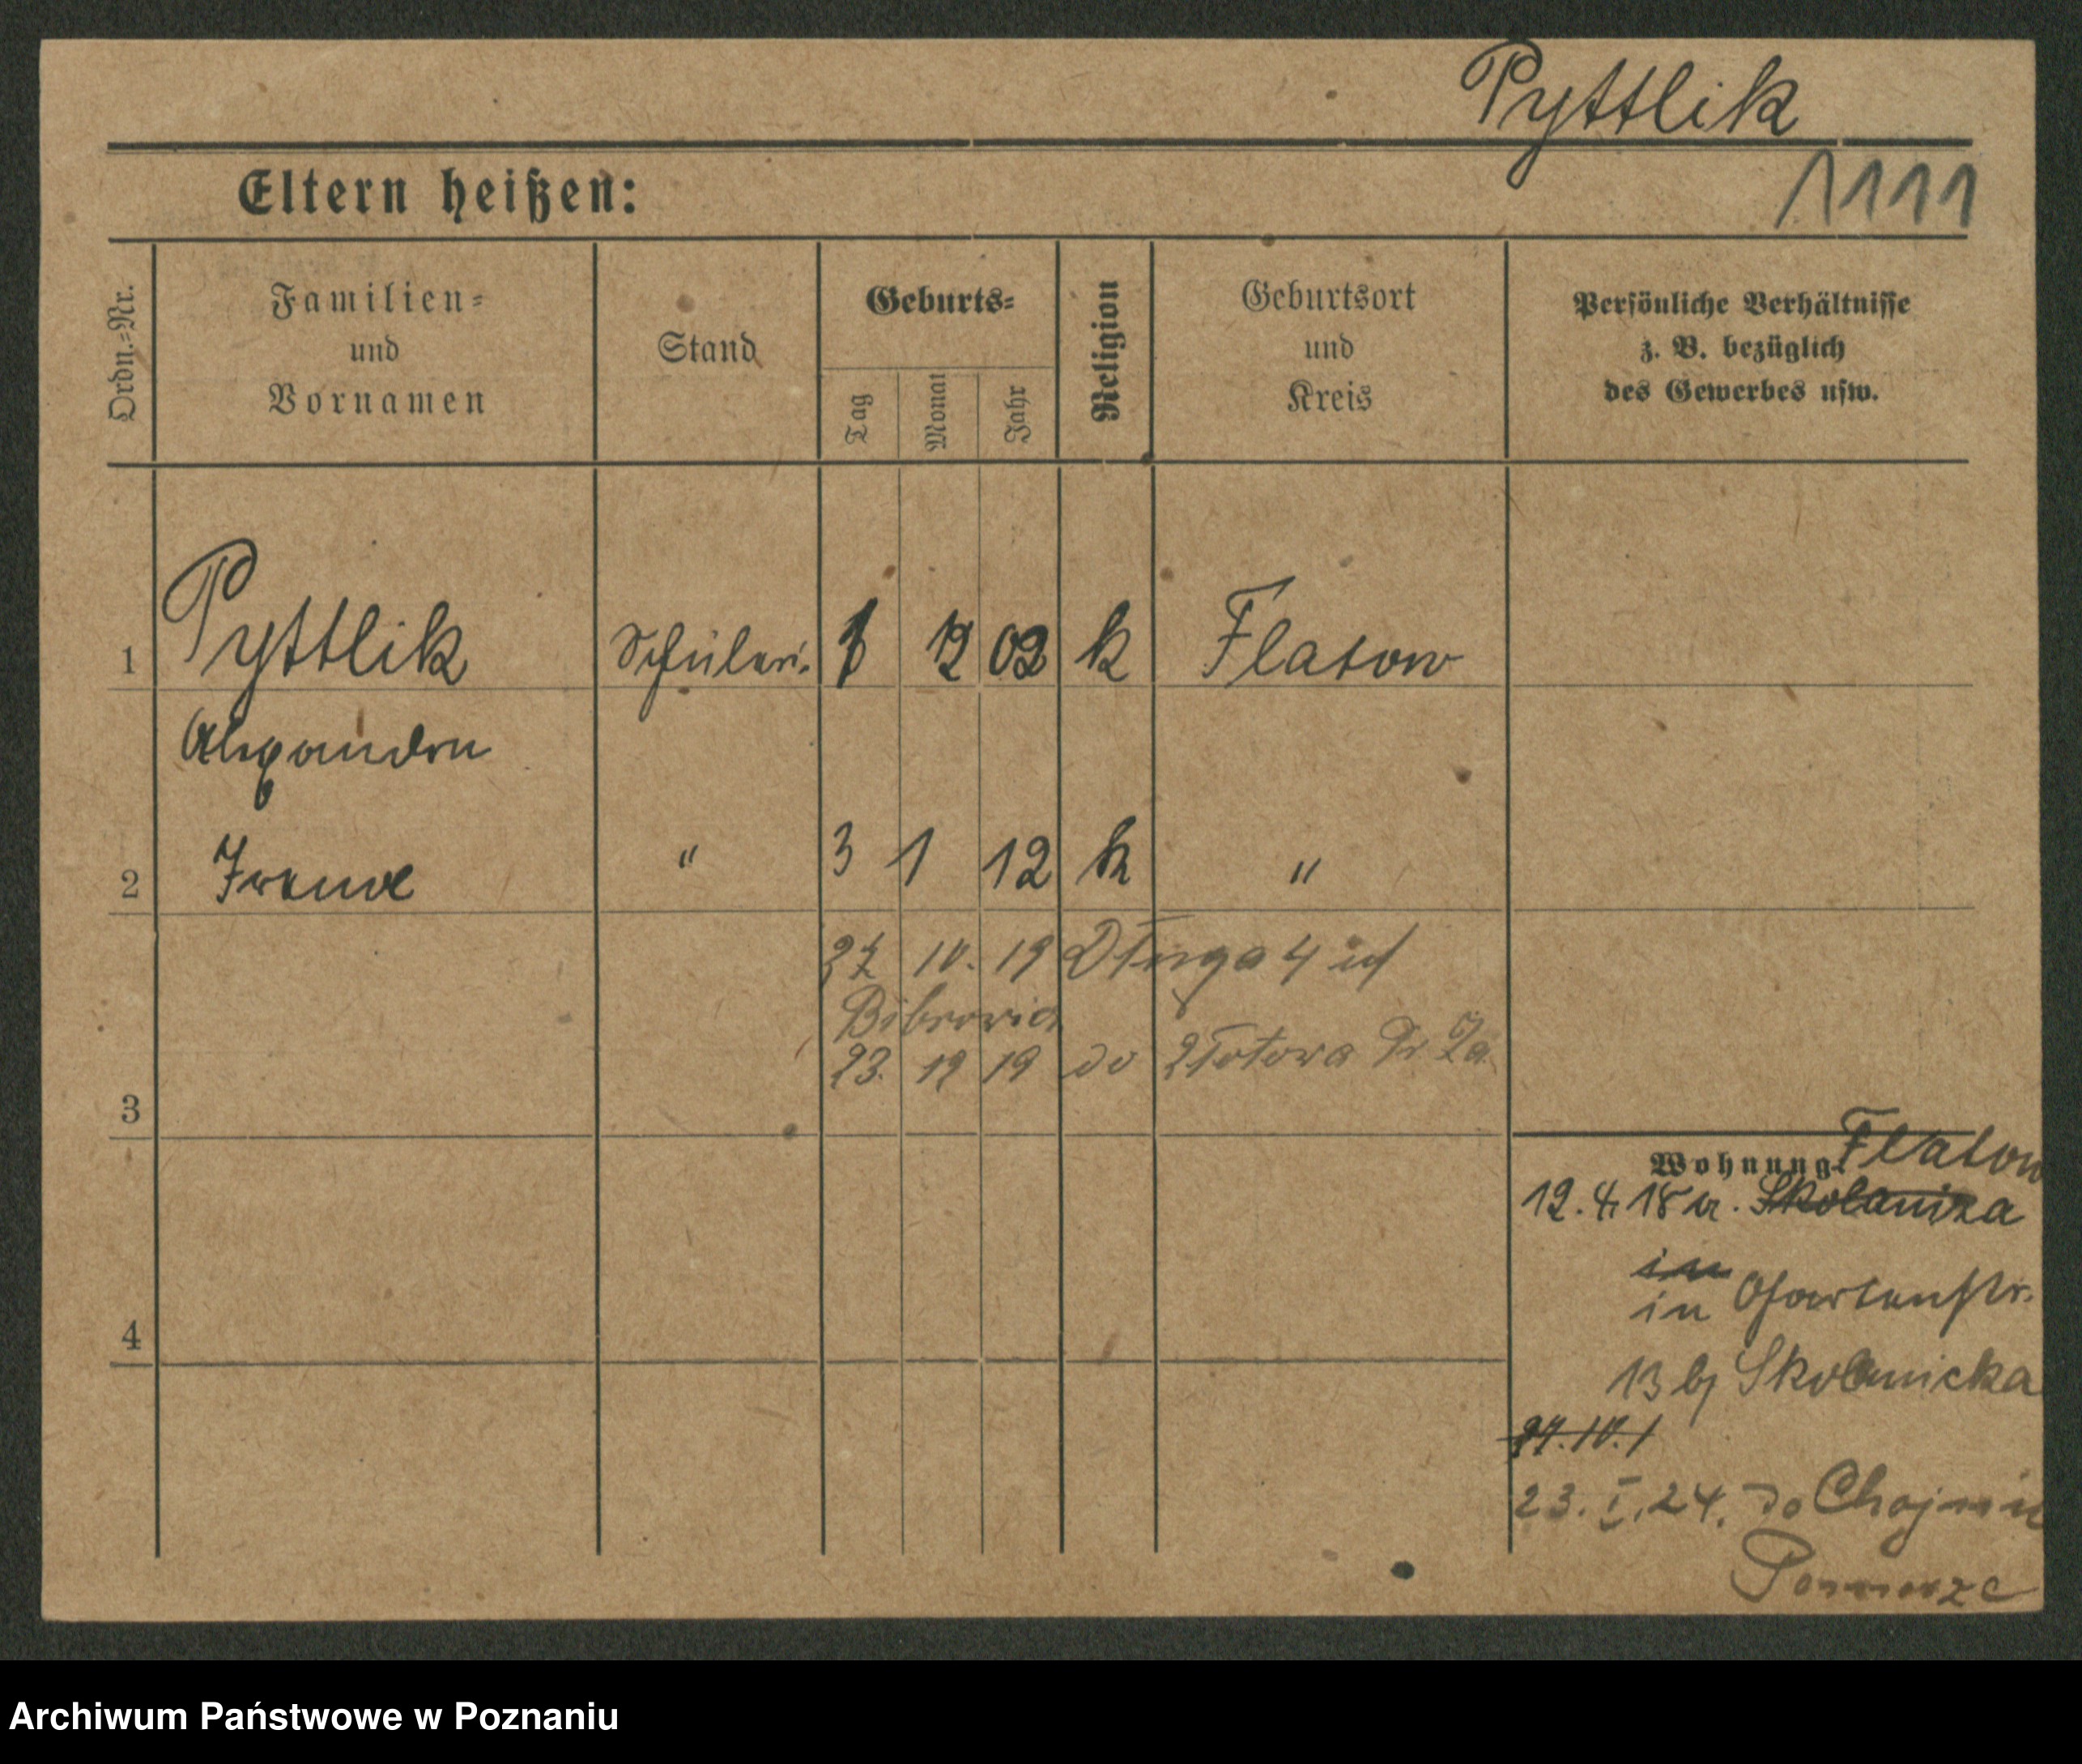 Pyttlik
1111
Eltern heißen:
Ordn.=Nr.
Familien=
und
Vornamen
Stand
Geburts=
Tag
Monat
Jahr
Religion
Geburtsort
und
Kreis
Persönliche Verhältnisse
z. B. bezüglich
des Gewerbes usw.
1 Pyttlik Schüleri. 1 12 02 k Flatow
Alexandra
2 Irene " 3 1 12 k "
10. 19 Długa 4
23. 12 19 do Złotowa
3
Wohnung. Flatow
12. 4. 18 Skolanizka
in
in Gartenstr.
13 bj Skolanicka
27.10.1
23. I. 24. do Chojnic
Pomorze
4
Archiwum Państwowe w Poznaniu